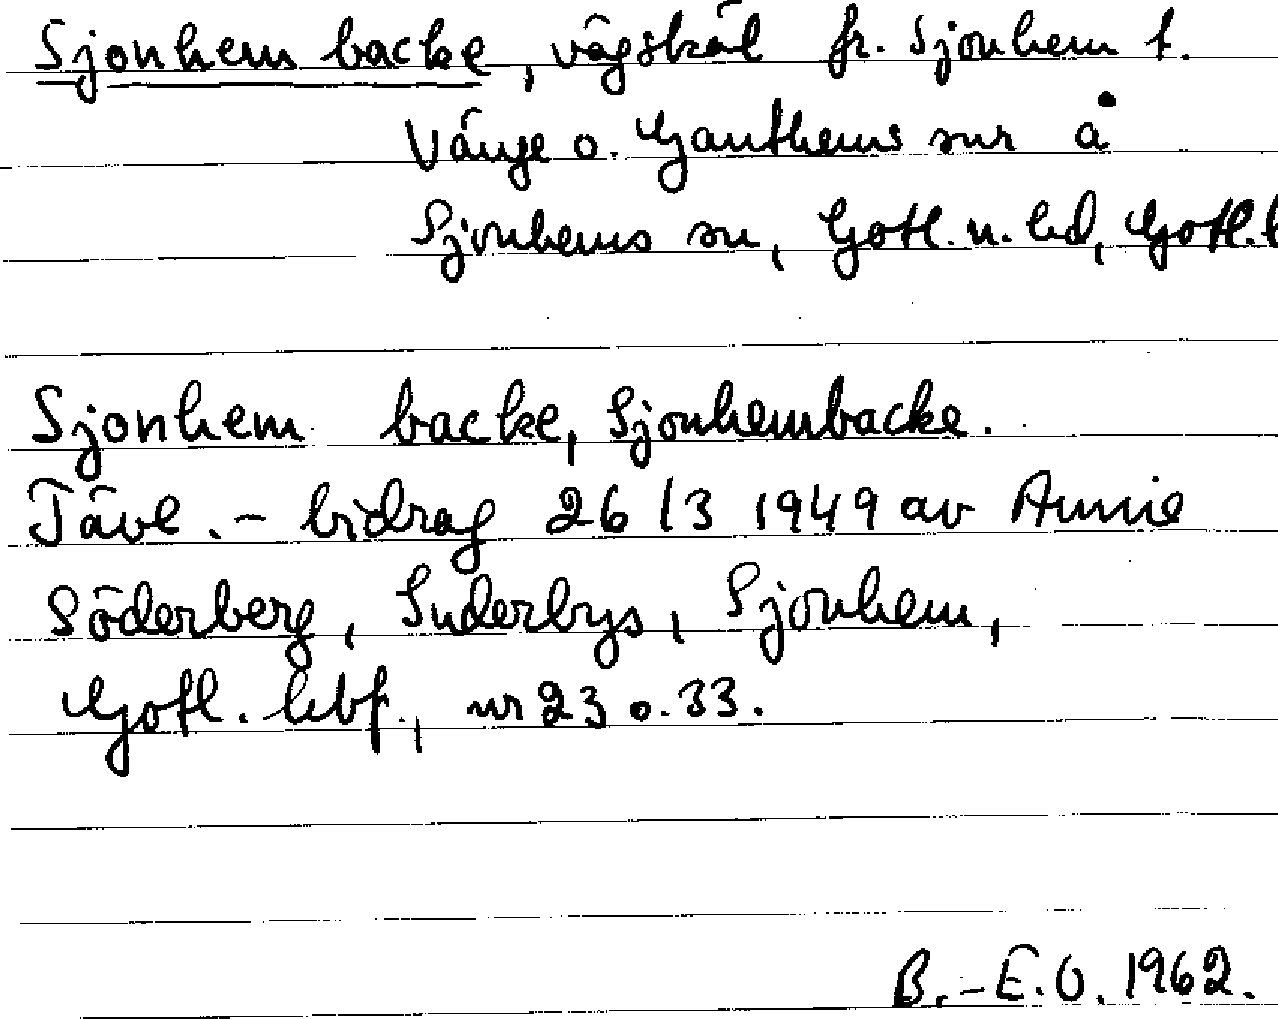 Sjonhem backe, vägskäl fr. Sjonhem t.
Vänge o. Ganthems snr å
Sjonhems sn, Gotl. n. hd, Gotl. l
Sjonhem backe, Sjonhembacke.
Tävl. - bidrag 26/3 1949 av Annie
Söderberg, Suderbys, Sjonhem,
Gotl. hbf., nr 23 o. 33.
B.-E.O. 1962.